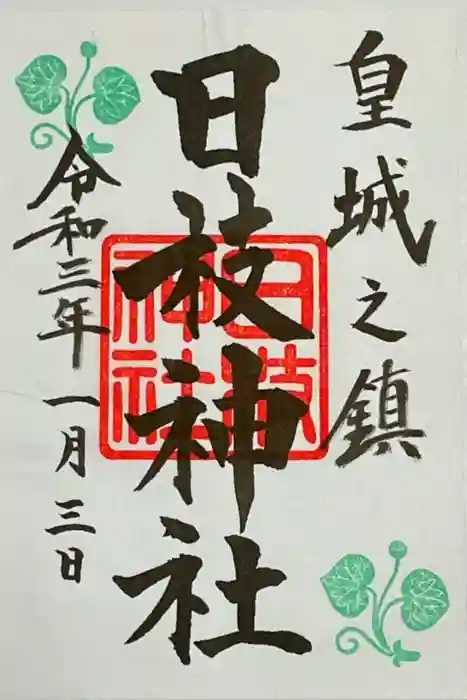 皇城之鎮
日枝神社
日枝神社
令和三年一月三日